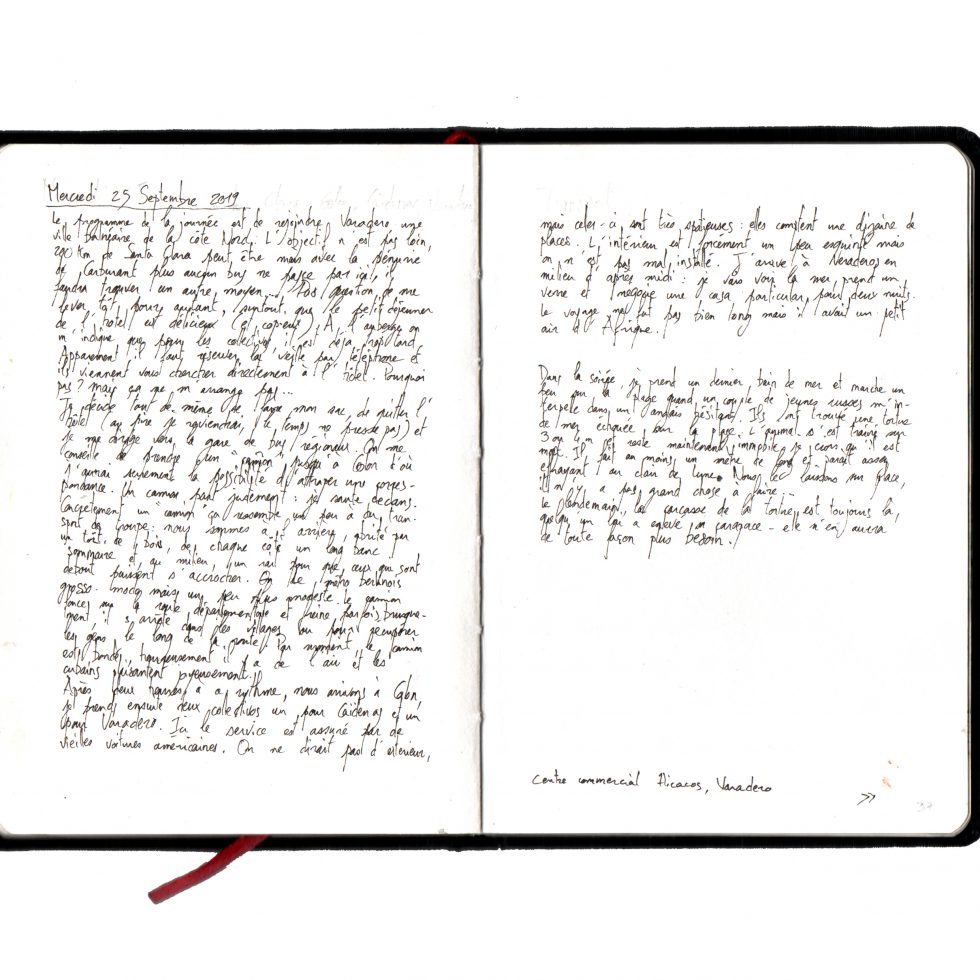 Mercredi 25 Septembre 2019
Le programme de la journée est de rejoindre Varadero une
ville balnéaire de la côte Nord. L'objectif n'est pas loin,
200 km de Santa Clara peut être mais avec la pénurie
de carburant plus aucun bus ne passe par ici, il
faudra trouver un autre moyen... Pas question de me
lever tôt pour autant, surtout que le petit déjeuner
de l'hôtel est délicieux (et copieux). A l'auberge on
m'indique que pour les collectivos il est déjà trop tard.
Apparement il faut réserver la veille par téléphone et
ils viennent vous chercher directement à l'hôtel. Pourquoi
pas? mais ça ne m'arrange pas...
Je décide tout de même de faire mon sac, de quitter l'
hôtel (au pire je reviendrai, le temps ne presse pas) et
je me dirige vers la gare de bus régionaux. On me
conseille de prendre un "camion" jusqu'à Colon d'où
j'aurai seulement la possibilité d'attraper une corres-
pondance. Un camion part justement: je saute dedans.
Concrètement un "camion" ça ressemble un peu à du tran-
sport de troupe: nous sommes à l'arrière, abrité par
un toit de bois, de chaque côté un long banc
sommaire et, au milieu, un rail pour que ceux qui sont
debout puissent s'accrocher. Un métro berlinois
grosso-modo mais un peu plus modeste. Le camion
fonce sur la route départementale et freine parfois brusque-
ment, il s'arrête dans les villages ou pour récupérer
les gens le long de la route. Par moment le camion
est bondé, heureusement il y a de l'air et les
cubains plaisantent joyeusement.
Après deux heures à ce rythme, nous arrivons à Colon,
je prends ensuite deux collectivos un pour Cárdenas et un
pour Varadero. Ici le service est assuré par de
vieilles voitures américaines. On ne dirait pas d'extérieur,
mais celles-ci sont très spatieuses: elles comptent une dizaine de
places. L'intérieur est forcément un peu esquinté mais
on n'est pas mal installé. J'arrive à Varadero en
milieu d'après midi: je vais voir la mer, prend un
verre et négocie une casa particular pour deux nuits.
Le voyage ne fut pas bien long mais il avait un petit
air d'Afrique.
Dans la soirée, je prend un dernier bain de mer et marche un
peu sur la plage quand un couple de jeunes russes m'in-
terpelle dans un anglais hésitant. Ils ont trouvé une tortue
de mer échouée sur la plage. L'animal s'est trainé sur
3 ou 4 m et reste maintenant immobile, je crois qu'il est
mort. Il fait au moins un mètre de long et parait assez
effrayant au clair de lune. Nous le laissons sur place,
il n'y a pas grand chose à faire...
Le lendemain, la carcasse de la tortue est toujours là,
quelqu'un lui a enlevé sa carapace - elle n'en aura
de toute façon plus besoin.
Centre commercial Hicacos, Varadero
>>
37